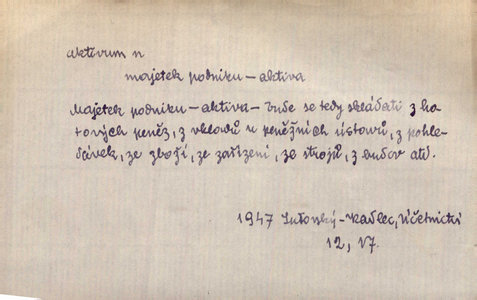 aktivum n
majetek podniku – aktiva
Majetek podniku – aktiva – bude se tedy skládati z ho-
tových peněz, z vkladů u peněžních ústavů, z pohle-
dávek, ze zboží, ze zařízení, ze strojů, z budov atd.
1947 Kadlec, Účetnictví
12, 17.